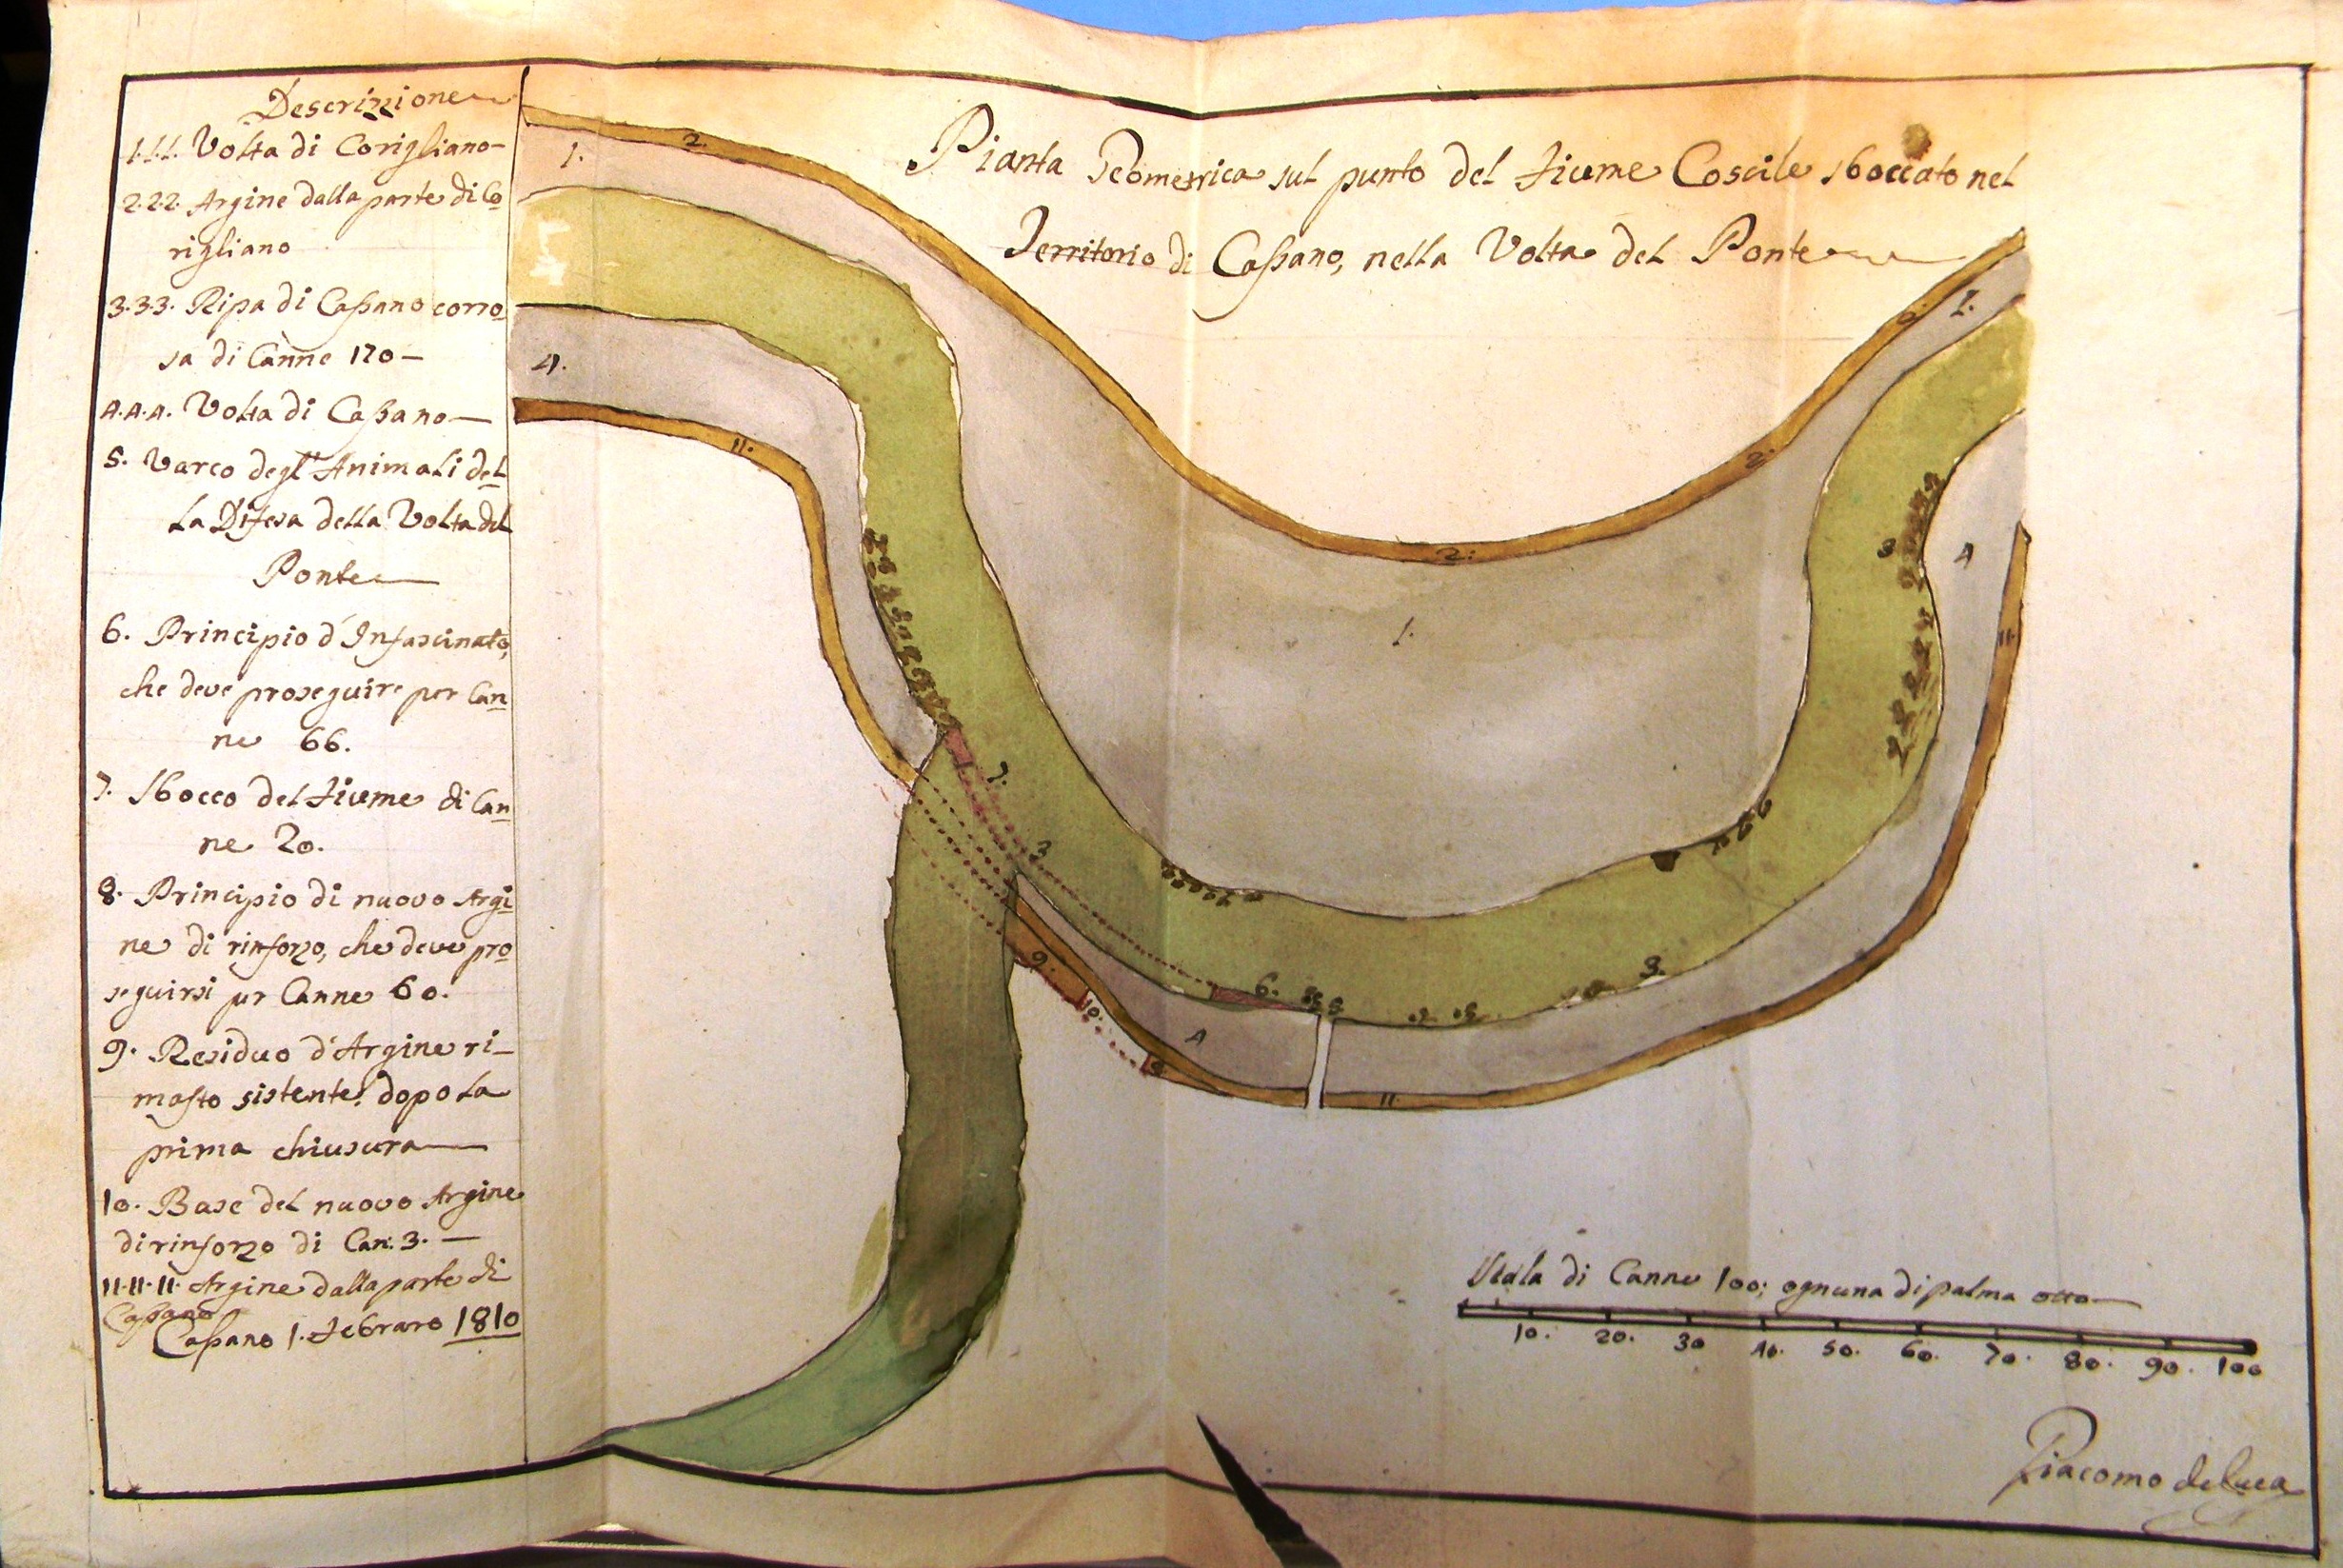 Descrizione
1.1.1. Volta di Corigliano
2.2.2. Argine dalla parte di Co
rigliano
3.3.3. Ripa di Caſsano corro
sa di Canne 120
4.4.4. Volta di Caſsano
5. Varco degl'Animali del
la Difesa della Volta del
Ponte
6. Principio d'Infascinato,
che deve proseguire per Can
ne 66.
7. Sbocco del Fiume di Can
ne 20.
8. Principio di nuovo Argi
ne di rinforzo, che deve pro
seguirsi per Canne 60.
9. Residuo d'Argine ri
maſto sistente dopo la
prima chiusura
10. Base del nuovo Argine
di rinforzo di Can: 3.
11.11.11. Argine dalla parte di
Caſsano
Caſsano 1. Febraro 1810
Pianta Geometrica sul punto del Fiume Coscile sboccato nel
Territorio di Caſsano, nella Volta del Ponte
1.
2.
4.
11.
2.
1.
2.
2.
1.
3
4
11
7.
3
9.
10.
8.
6.
4
3.
11
Scala di Canne 100; ognuna di palma otto
10. 20. 30 40. 50. 60. 70. 80. 90. 100
Giacomo de Luca